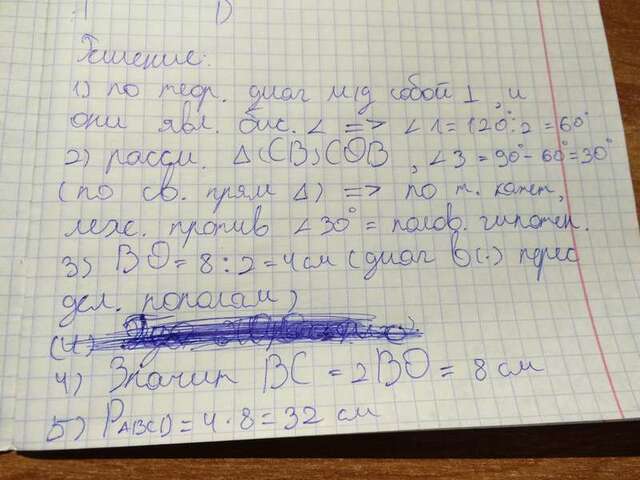 Решение:
1) по теор. диаг м/д собой ⊥, и
они явл. бис. ∠ => ∠1=120°:2=60°
2) рассм. △CBO, ∠3=90°-60°=30°
(по св. прям △) => по т. катет,
леж. против ∠30° = полов. гипотен.
3) BO=8:2=4см (диаг в(·) перес
дел. пополам)
4) Значит BC=2BO=8см
5) PABCD=4·8=32 см